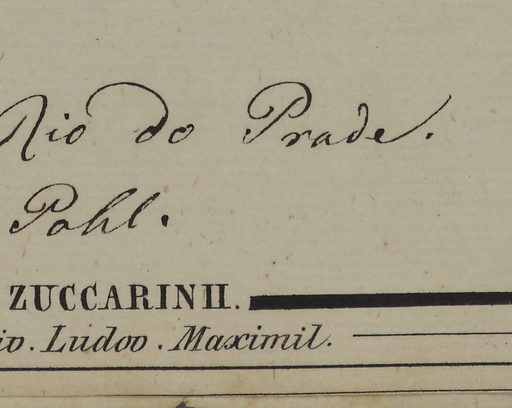 Rio do Prade.
Pohl.
ZUCCARINII.
io. Ludov. Maximil.